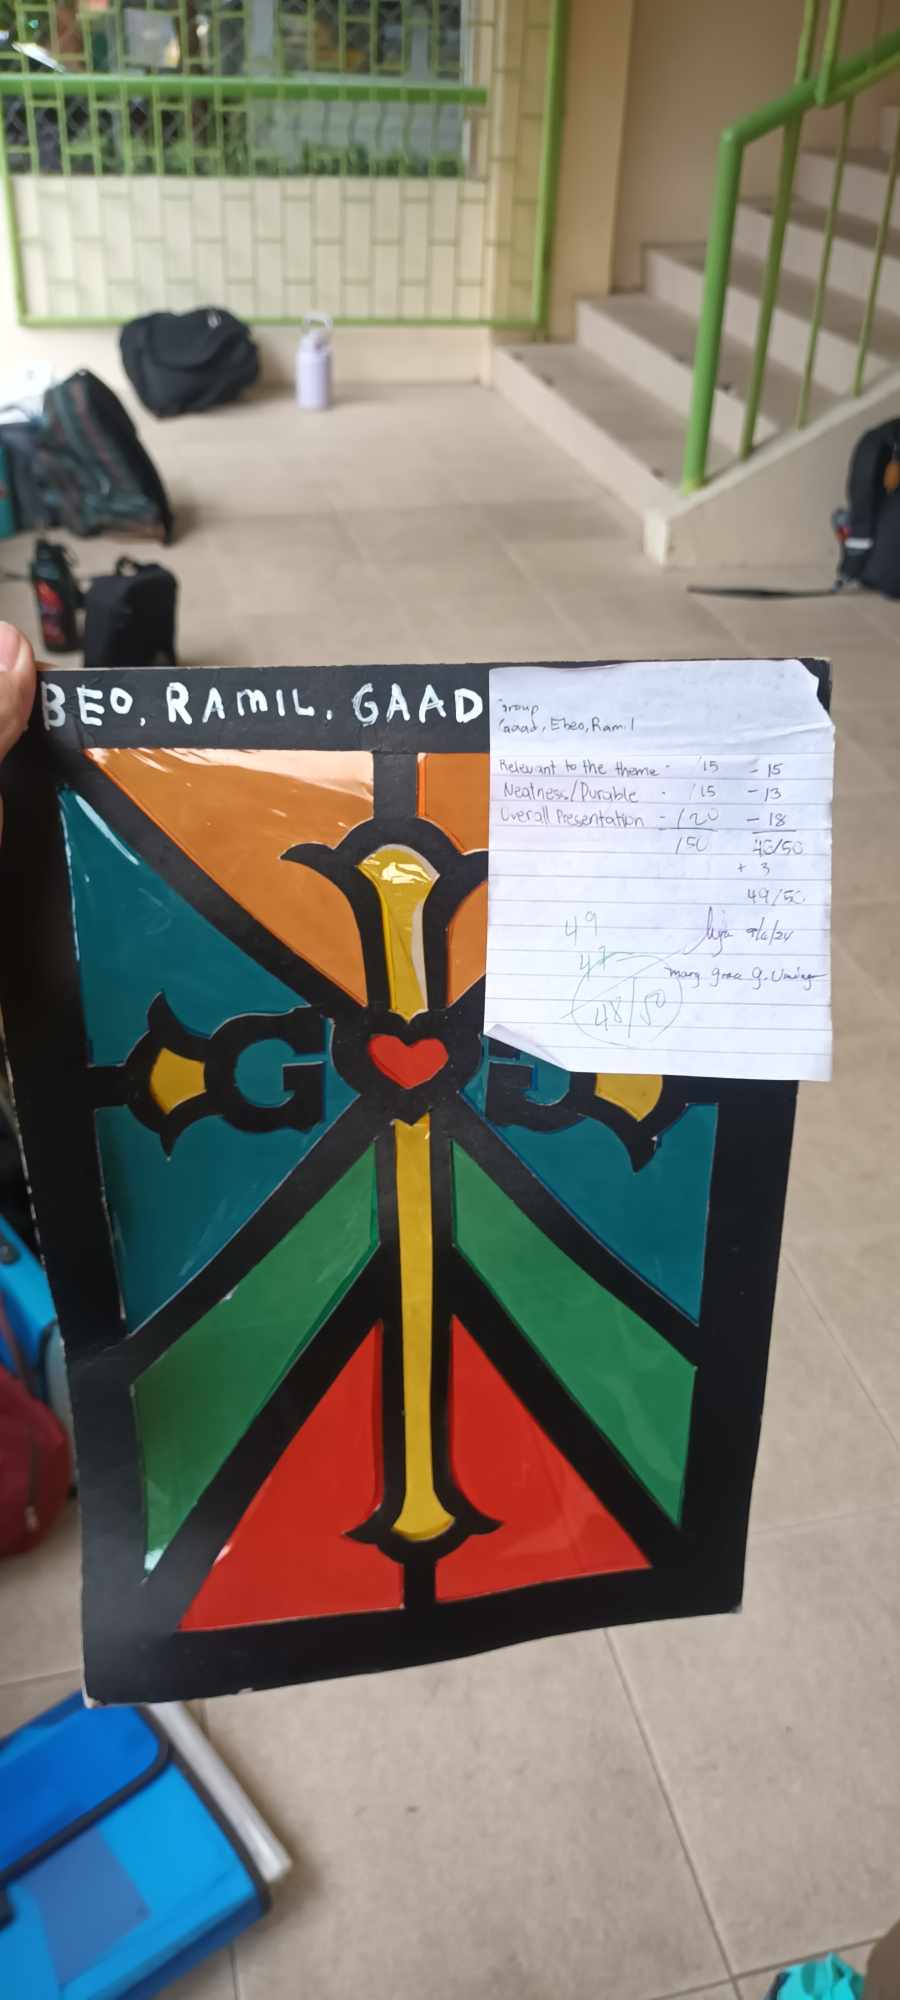 BEO, RAMIL, GAAD
Group
Gaad, Ebeo, Ramil
Relevant to the theme - /15 - 15
Neatness/Durable - /15 - 13
Overall Presentation - /20 - 18
/50 46/50
+ 3
49/50
49
9/6/24
47
Mary Grace G.
48/50
G G